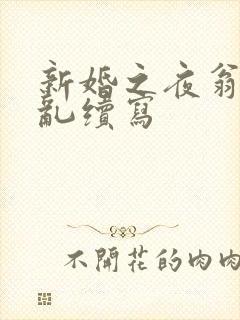 新婚之夜翁
亂續寫
不開花的肉肉